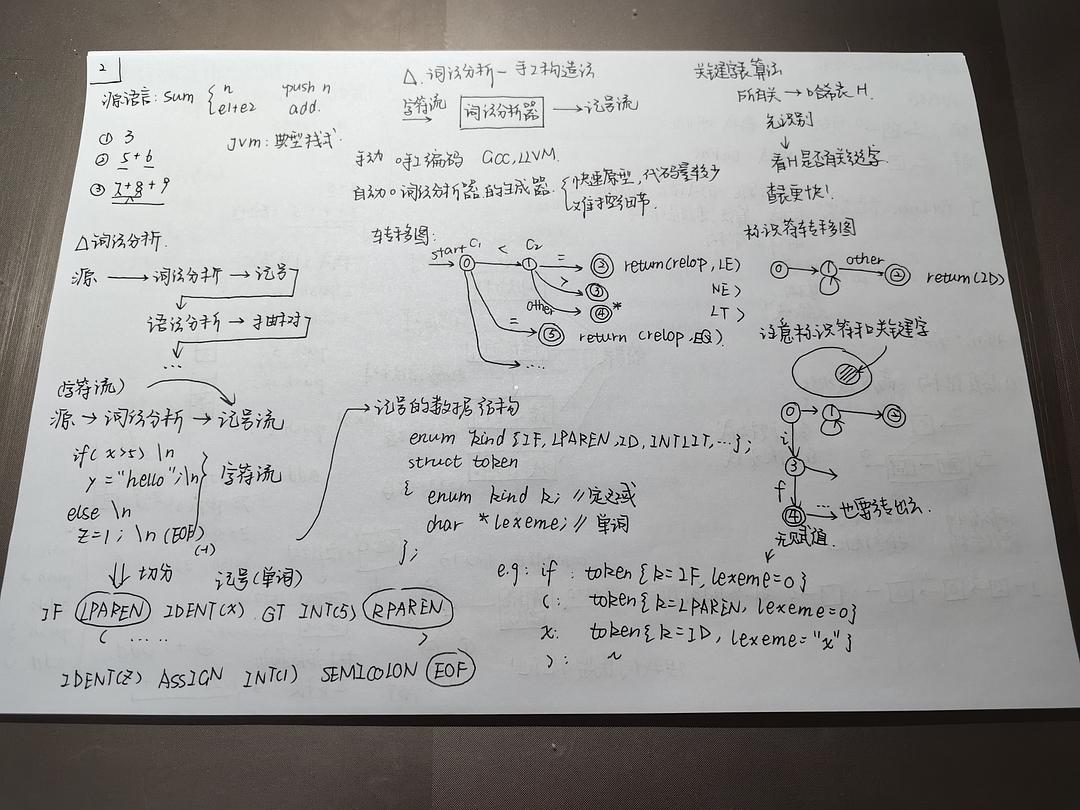 2
源语言: sum { n push n
e1+e2 add.
① 3
② 5+6
③ 7+8+9
JVM: 典型栈式.
△词法分析.
源 → 词法分析 → 记号
语法分析 → 抽象树
...
(字符流)
源 → 词法分析 → 记号流
if( x>5) \n
y = "hello";\n
else \n
z=1; \n (EOF)
(-1)
字符流
切分 记号(单词)
IF LPAREN IDENT(x) GT INT(5) RPAREN
( ..... )
IDENT(z) ASSIGN INT(1) SEMICOLON EOF
△. 词法分析—手工构造法
字符流 → 词法分析器 → 记号流
手动 。手工编码 GCC, LLVM.
自动 。词法分析器的生成器. { 快速原型, 代码量较少
难控细节.
转移图:
start C₁ < C₂
0 1 = ② return(relop, LE)
> ③ NE)
other ④* LT)
= ⑤ return (relop, EQ).
....
→ 记号的数据结构
enum kind {IF, LPAREN, ID, INTLIT, ...};
struct token
{ enum kind k; // 定义域
char *lexeme; // 单词
};
e.g: if : token{k=IF, lexeme=0}
(: token{k=LPAREN, lexeme=0}
x: token{k=ID, lexeme="x"}
): ~
关键字表算法
所有关 → 哈希表 H.
先识别
↓
看H是否有关键字
查表更快!
标识符转移图
0 → 1 other → ② return(ID)
注意标识符和关键字
0 → 1 → ②
i
3 →
f
④ ... → 也要转出去.
无赋值.